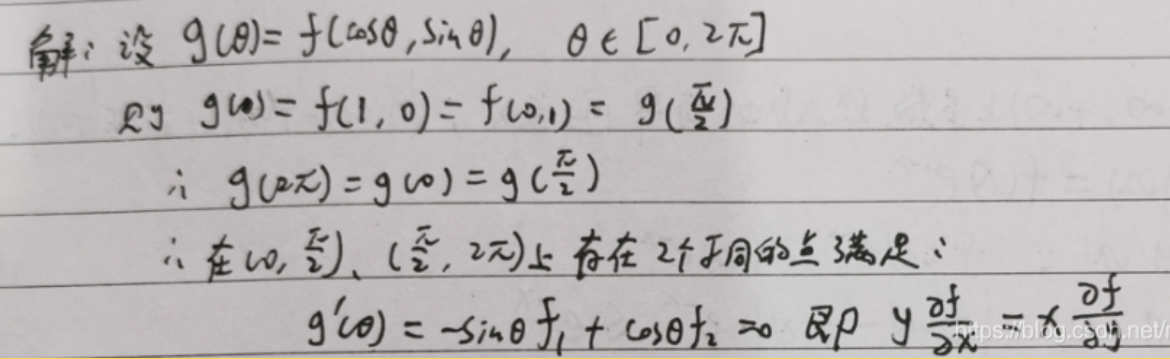 解：设 g(θ)= f(cosθ, sinθ), θ∈[0, 2π]
则 g(0)= f(1, 0)= f(0,1)= g(π/2)
∴ g(2π)=g(0)=g(π/2)
∴ 在(0, π/2)、(π/2, 2π)上 存在2个不同的点满足：
g'(θ) = -sinθ f₁ + cosθ f₂ =0 即 y ∂f/∂x = x ∂f/∂y
https://blog.csdn.net/